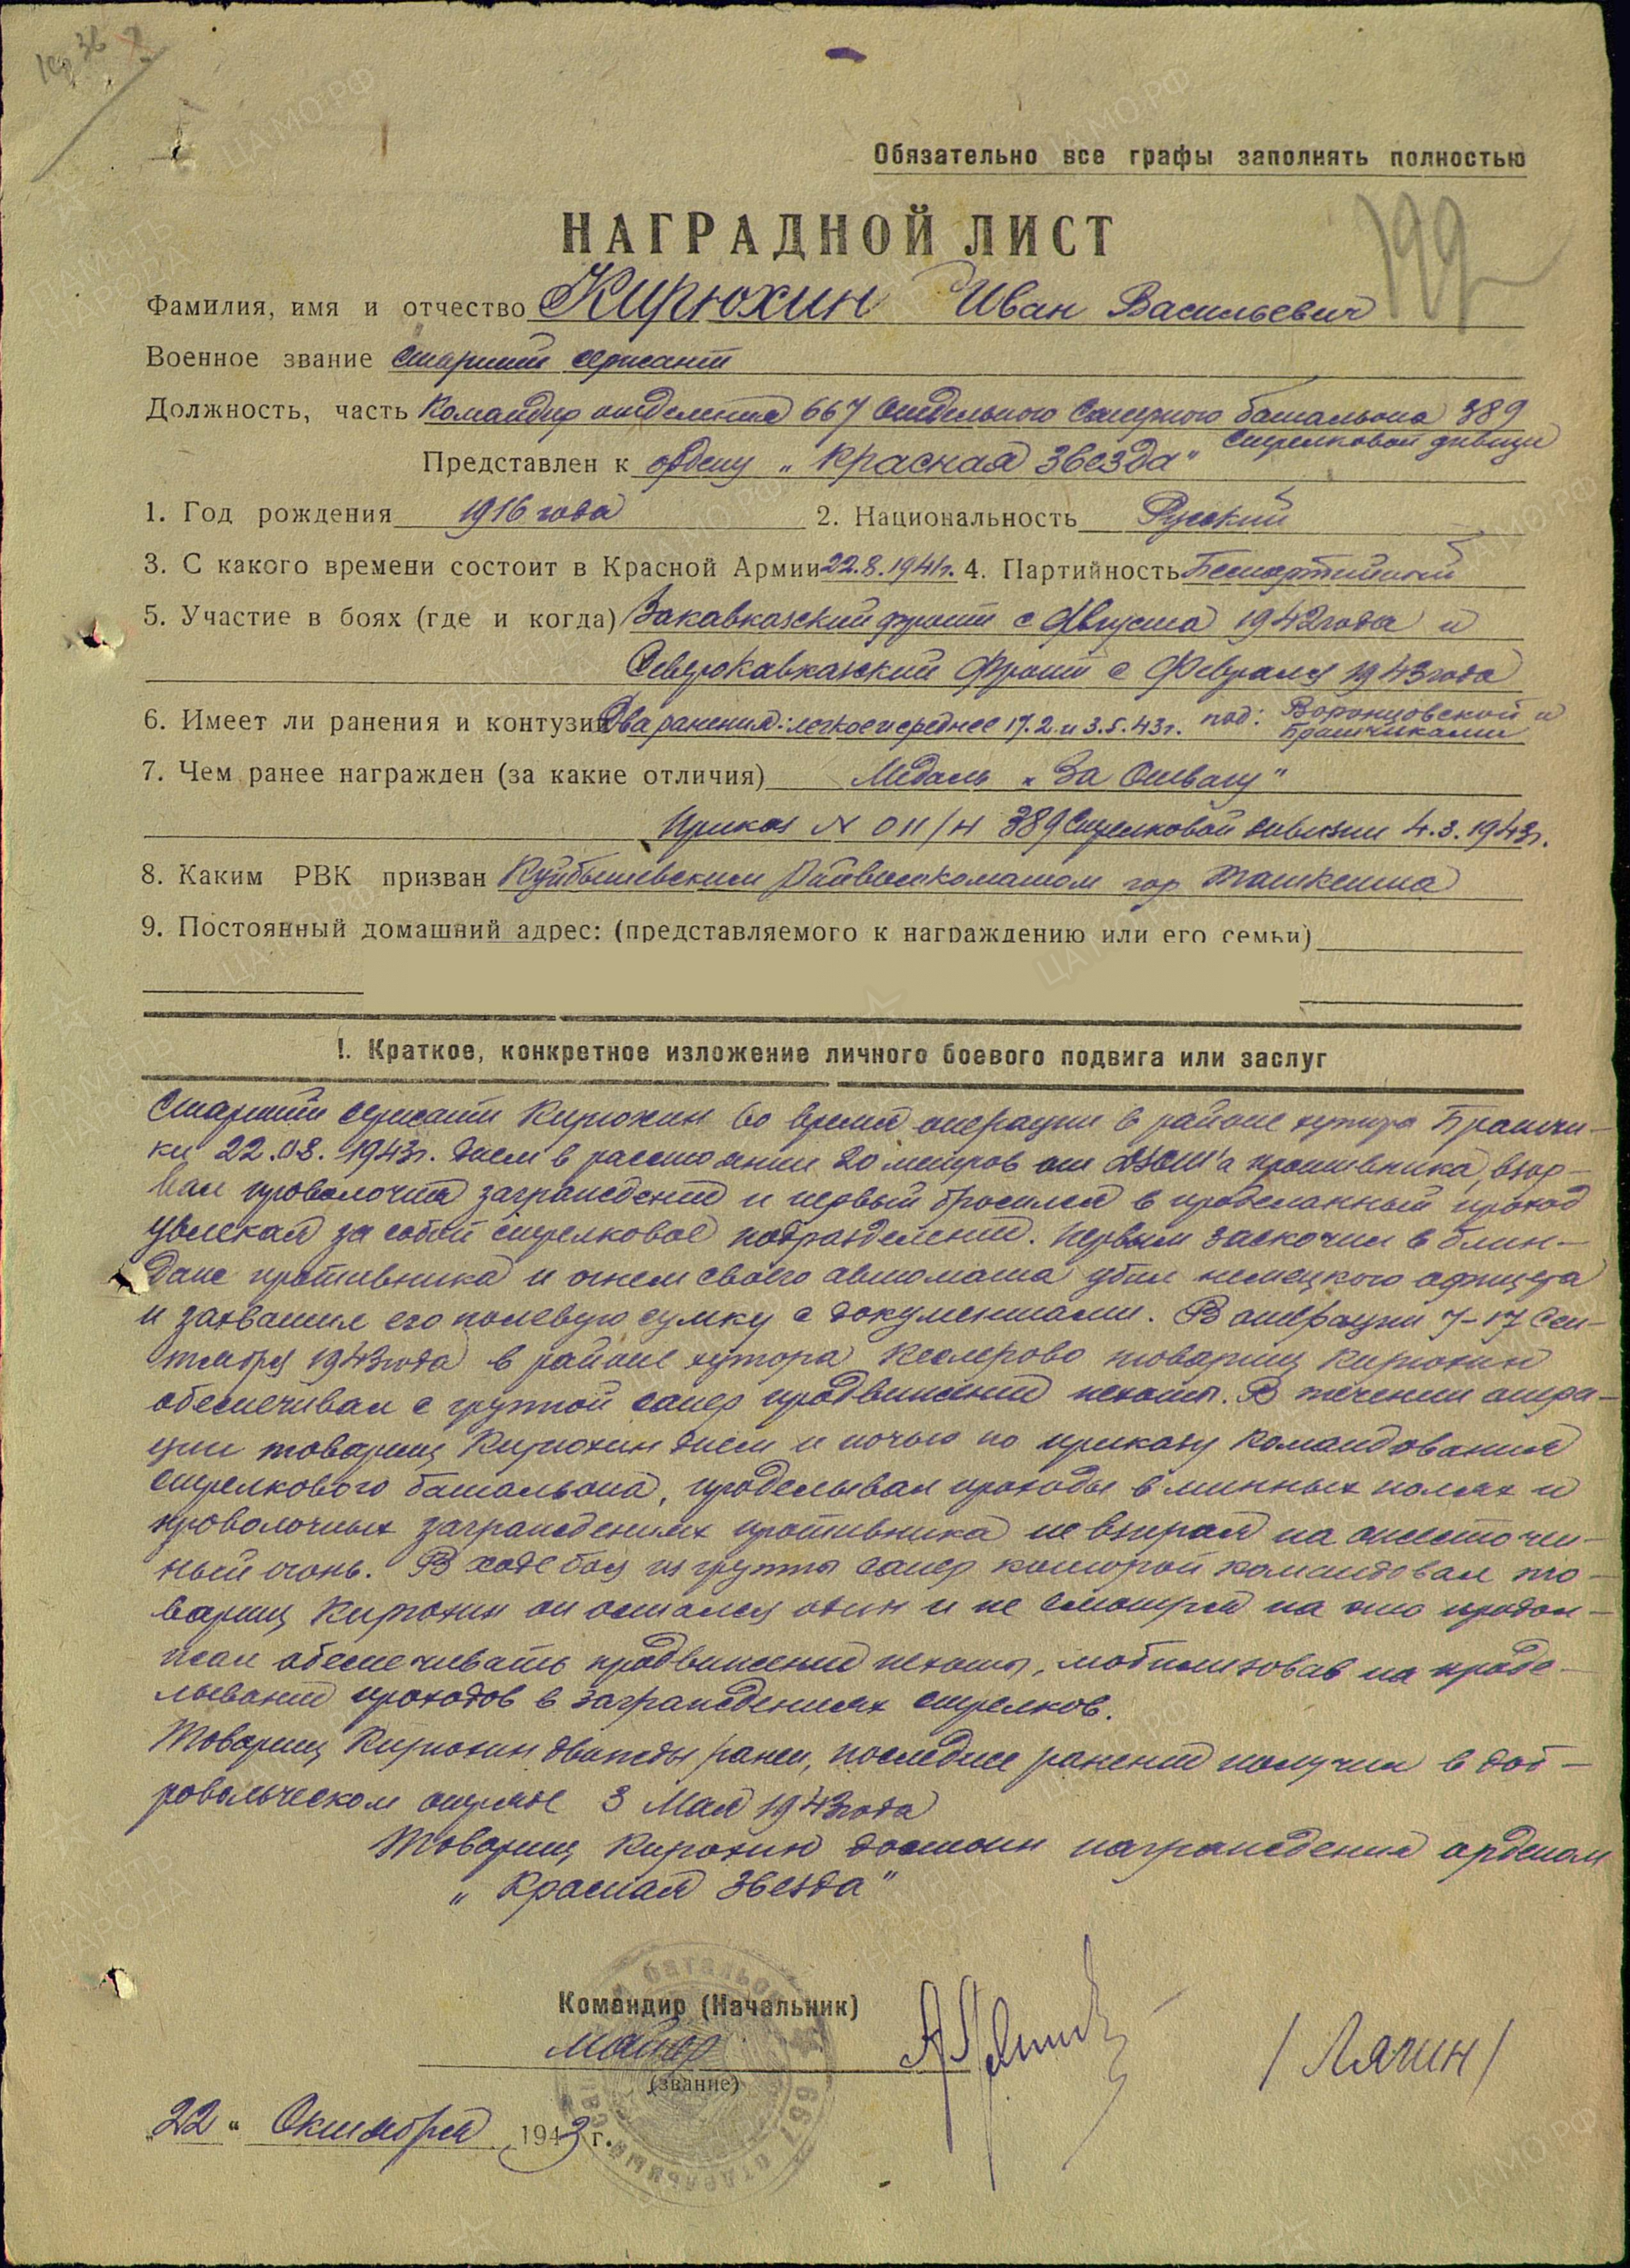 Обязательно все графы заполнять полностью
НАГРАДНОЙ ЛИСТ
199
Фамилия, имя и отчество Кирюхин Иван Васильевич
Военное звание Старший сержант
Должность, часть Командир отделения 667 Отдельного Саперного батальона 389
Стрелковой дивизи
Представлен к ордену „Красная Звезда"
1. Год рождения 1916 года 2. Национальность Русский
3. С какого времени состоит в Красной Армии 22.8.1941г. 4. Партийность Беспартийный
5. Участие в боях (где и когда) Закавказский фронт с Августа 1942 года и
Северокавказский Фронт с Февраля 1943 года
6. Имеет ли ранения и контузии Два ранения: легкое и среднее 17.2. и 3.5.43г. под: Воронцовской и
Брашчиками
7. Чем ранее награжден (за какие отличия) Медаль „За Отвагу"
Приказ N 011/н 389 Стрелковой дивизии 4.3.1943г.
8. Каким РВК призван Куйбышевским Райвоенкоматом гор Ташкента
9. Постоянный домашний адрес: (представляемого к награждению или его семьи)
I. Краткое, конкретное изложение личного боевого подвига или заслуг
Старший сержант Кирюхин во время операции в районе хутора Брашчи-
ки 22.08.1943г. днем в расстоянии 20 метров от ДЗОТ'а противника, взор-
вал проволочное заграждение и первый бросился в проделанный проход
увлекая за собой стрелковое подразделение. Первым заскочил в блин-
даж противника и огнем своего автомата убил немецкого офицера
и захватил его полевую сумку с документами. В операции 7-17 Сен-
тября 1943 года в районе хутора Кеслерово товарищ Кирюхин
обеспечивал с группой сапер продвижение пехоты. В течении опера-
ции товарищ Кирюхин днем и ночью по приказу командования
стрелкового батальона, проделывал проходы в минных полях и
проволочных заграждениях противника не взирая на ожесточен-
ный огонь. В ходе боя из группы сапер которой командовал то-
варищ Кирюхин он остался один и не смотря на это продол-
жал обеспечивать продвижение пехоты, мобилизовав на проде-
лывание проходов в заграждениях стрелков.
Товарищ Кирюхин дважды ранен, последнее ранение получил в доб-
ровольческом отряде 3 Мая 1943 года
Товарищ Кирюхин достоин награждения орденом
„Красная Звезда"
Командир (Начальник)
майор
/Лягин/
(звание)
„22" Октября 1943 г.